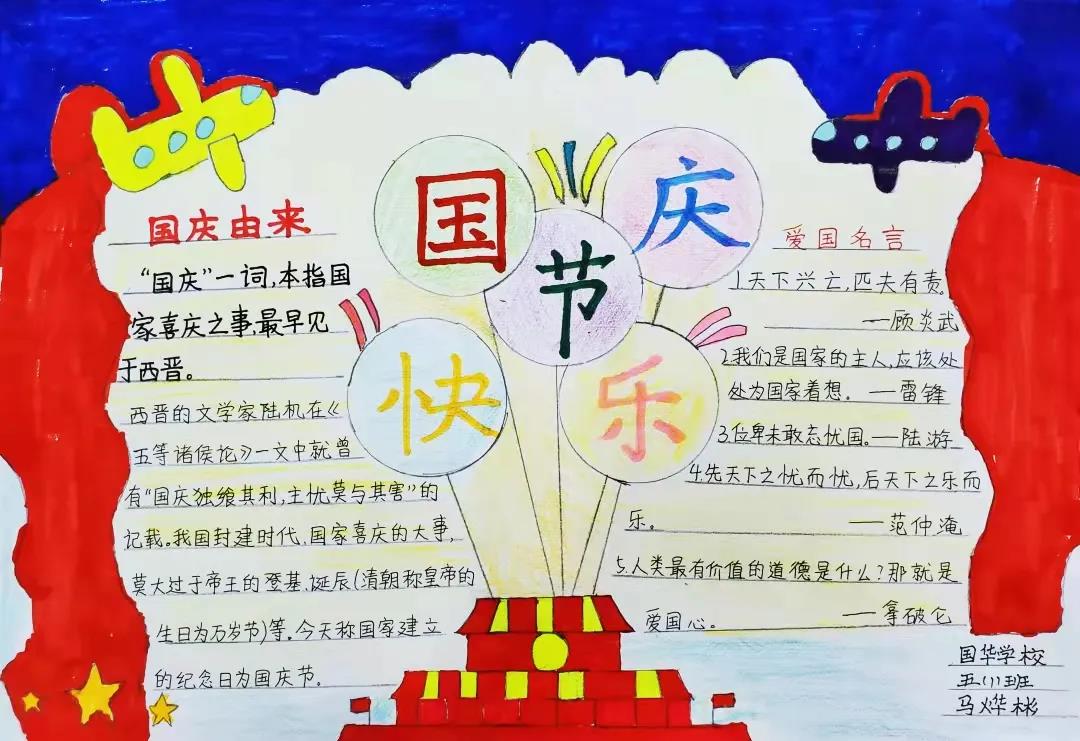 国庆
节
快乐
国庆由来
“国庆”一词,本指国
家喜庆之事,最早见
于西晋。
西晋的文学家陆机在《
五等诸侯论》一文中就曾
有“国庆独飨其利,主忧莫与其害”的
记载。我国封建时代、国家喜庆的大事,
莫大过于帝王的登基、诞辰(清朝称皇帝的
生日为万岁节)等。今天称国家建立
的纪念日为国庆节。
爱国名言
1.天下兴亡,匹夫有责。
——顾炎武
2.我们是国家的主人,应该处
处为国家着想。——雷锋
3.位卑未敢忘忧国。——陆游
4.先天下之忧而忧,后天下之乐而
乐。——范仲淹
5.人类最有价值的道德是什么?那就是
爱国心。——拿破仑
国华学校
五(1)班
马烨彬